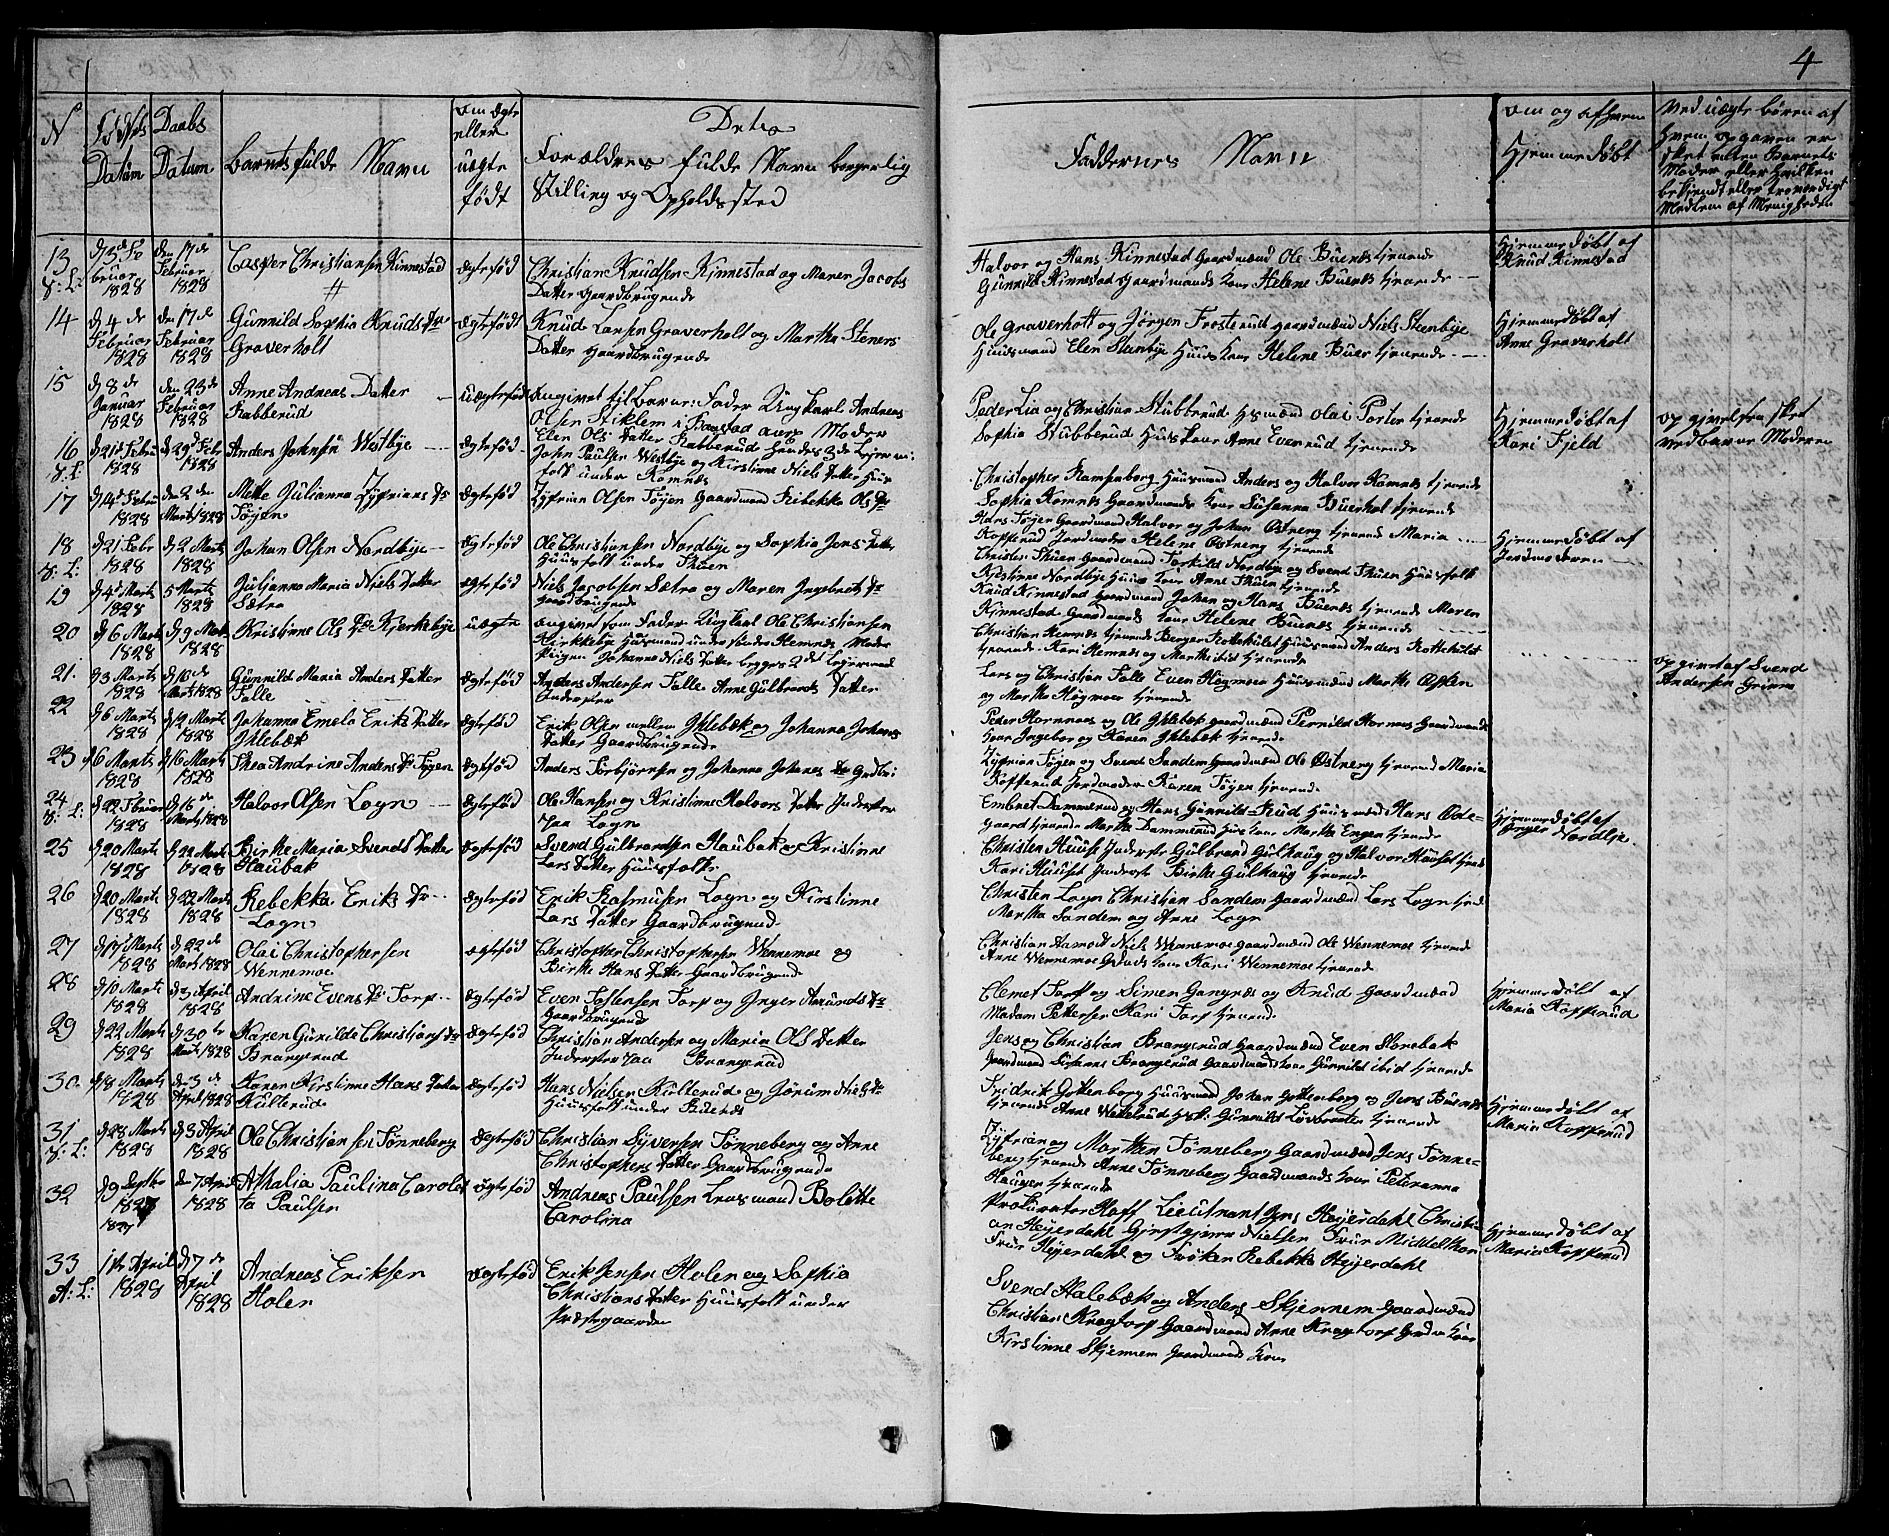 4
N
Fødsels Datum
Daabs Datum
Barnets fulde Navn
om ægte eller uægte født
Foraldres fulde Navn borgerlig
Stilling og Opholdssted
Faddernes Navn
om og af hvem
Hjemmedøbt
Ved uægte børen af
13
1828
den 17de Februar 1828
Casper Christiansen Kinnestad
ægtefød
Christian Knudsen Kinnestad og Maren Jacobs
Datter Gaardbrugende
Halvor og Hans Kinnestad Gaardmænd Ole Buenæs tjenende
Gunnild Kinnestad Gaardmands Kone Helene Buenæs tjenende
Hjemmedøbt af
Knud Kinnestad
14
d 4de Februar 1828
den 17de Februar 1828
Gunnild Sophia Knuds Dr
Graverholt
ægtefødt
Knud Larsen Graverholt og Martha Steners
Datter Gaardbrugende
Ole Graverholt og Jørgen Frosterud Gaardmænd Niels Steenbye
Huusmand Elen Stenbye Huus Kone Helene Buer tjenende
Hjemmedøbt af
Anne Graverholt
15
d 8de Januar 1828
den 23de Februar 1828
Anne Andreas Datter
Rabberud
uægtefødt
Angivet til Barne-Fader Ungkarl Andreas
Olsen Stiklem i Baastad Moder
Elen Ols Datter Rabberud
Peder Lia og Christian Stubberud Husmænd Olai Porter tjenende
Sophia Stubberud Huus Kone Anne Evenrud tjenende
Hjemmedøbt af
Kari Fjeld
opgivelsen skeet
ved Barnets Moder
16
d 21de Febr 1828
d 29de Febr 1828
Anders Johnsen Westbye
ægtefød
John Paulsen Westbye og Kirstinne Niels Datter Huus
folk under Romnæs
Christopher Ramsenborg Huusmand Anders og Halvor Ramnæs tjenende
Sophia Romnæs Gaardmands Kone Susanna Buerhol tjenende
17
1828
den 2den Marts 1828
Mette Julianna Zyprians Dr
Tøjen
ægtefød
Zyprian Olsen Tøyen Gaardmand Rebekka Ols Dr
Hans Tøyen Gaardmand Halvor og Johan Østreng tjenende Maria
Kopperud Jordmoder Helene Østreng tjenende
18
d 21 Febr 1828
d 2 Marts 1828
Johan Olsen Nordbye
ægtefød
Ole Christiansen Nordbye og Sophia Jens Datter
Huusfolk under Thuen
Christen Thuen Gaardmand Torkild Nordbye og Svend Thuen Huusfolk
Kirstinne Nordbye Huus Kone Anne Thuen tjenende
Hjemmedøbt af
Jordmoderen
19
d 4de Marts 1828
5 Marts 1828
Julianna Maria Niels Datter
Sætra
ægtefød
Niels Jacobsen Sætra og Maren Ingebrets Dr
Gaardbrugende
Knud Kinnestad Gaardmand Johan og Hans Buenæs tjenende Maren
Kinnestad Gaardmands Kone Helene Buenæs tjenende
20
d 6 Marts 1828
d 9 Marts 1828
Kristinne Ols Dr Kjerkebye
uægte
angivet som Fader Ungkarl Ole Christiansen
Kirkkebye Huusmand under Hemnæs Moder
Piigen Johanne Niels Datter begges 2det Leyermaal
Christian Hemnæs tjenende Berger Kottehület Huusmand Anders Kottehület
tjenende Kari Hemnæs og Marthe ibid tjenende
opgivet af Svend
Andersen Grinna
21.
d 3 Marts 1828
d 16de Marts 1828
Gunnild Maria Anders Datter
Falle
ægtefød
Anders Andersen Falle Anne Gulbrands Datter
Inderster
Lars og Christian Falle Even Høgmoer Huusmænd Marthe Ophen
og Martha Høgmoer tjenende
22
d 6 Marts 1828
d 9 Marts 1828
Johanna Emela Eriks Datter
Ihlebæk
ægtefød
Erik Olsen mellem Ihlebæk og Johanna Johans
Datter Gaardbrugende
Peder Hornnæs og Ole Ihlebæk Gaardmænd Pernild Hornæs Gaardmands
Kone Ingebor og Karen Ihlebæk tjenende
23
d 6 Marts 1828
d 16 Marts 1828
Thea Andrine Anders Dr Tøyen
ægtefød
Anders Torbjørnsen og Johanna Johanes Dr
Zyprian Tøyen og Svend Sandem Gaardmænd Ole Østreng tjenende Maria
Kopperud Jordmoder Karen Tøyen tjenende
24
d 22 Februar 1828
d 16de Marts 1828
Halvor Olsen Logn
ægtefød
Ole Hansen og Kristinne Halvors Datter Inderster
paa Logn
Embret Dammerud og Hans Gunnild Rud Huusmænd Hans Øde-
gaard tjenende Martha Dammerud Huus Kone Marthe Engen tjenende
Hjemmedøbt af
Inger Nordbye
25
d 20 Marts 1828
d 22 Marts 1828
Birthe Maria Svends Datter
Haubak
ægtefød
Svend Gulbrandsen Haubak og Kristinne
Lars Datter Huusfolk
Christen Huuse Inderste Gulbrand Gulhaug og Halvor Huuset tjen
Kari Huuset Inderste Birthe Gulhaug tjenende
26
d 20 Marts 1828
d 22 Marts 1828
Rebekka Eriks Dr
Logn
ægtefød
Erik Rasmusen Logn og Kirstinne
Lars Datter Gaardbrugend.
Christen Logn Christian Sandem Gaardmænd Lars Logn tjend
Martha Sandem og Anne Logn
27
d 17 Marts 1828
d 22de Marts 1828
Olai Christophersen
Wennemoe
ægtefød
Christopher Christophersen Wennemoe og
Birthe Hans Datter Gaardbrugende
Christian Aamodt Niels Wennemoe Gaardmænd Ole Wennemoe tjenende
Anne Wennemoe Gdmds Kone Kari Wennemoe tjenende
28
d 10 Marts 1828
d 3 April 1828
Andrine Evens Dr Torp
ægtefød
Even Tostensen Torp og Inger Amunds Dr
Gaardbrugende
Clemet Torp og Simen Gangnæs og Knud Gaardmænd
Madam Pettersen Kari Torp tjenende
Hjemmedøbt af
Maria Kopperud
29
d 22 Marts 1828
d 30te Marts 1828
Karen Gunilda Christians Dr
Brangerud
ægtefød
Christian Andersen og Maria Ols Datter
Inderster paa Brangerud
Jens og Christian Brangerud Gaardmænd Even Slorebæk
Gaardmand Brangerud Gaardmands Kone Gunnild ibid tjenende
30
d 18 Marts 1828
den 3de April 1828
Karen Kirstinne Hans Datter
Kulterud
ægtefød
Hans Nielsen Kulterud og Jørum Niels Dr
Huusfolk under Buenæs
Fridrik Gottenborg Huusmand Johan Gottenborg og Jens Buenæs
tjenende Anne Gunnild tjenende
Hjemmedøbt af
Maria Kopperud
31
d 28 Marts 1828
d 3 April 1828
Ole Christiansen Tønneberg
ægtefød
Christian Syversen Tønneberg og Anne
Christophers Datter Gaardbrugende
Zyprian og Marthin Tønneberg Gaardmænd Jens Tønne-
berg tjenende Anne Tønneberg Gaardmands Kone Peteranna
Hauger tjenende
32
d 9 Septbr 1827
1827
den 7 April 1828
Athalia Paulina Carolet
ta Paulsen
ægtefød
Andreas Paulsen Lensmand Bolette
Carolina
Prokurator Hoff Lieutnant Jens Heyerdahl Christi-
an Heyerdahl Gjestgiver Nielsen Frue Middelthon
Frue Heyerdahl og Frøken Rebekka Heyerdahl
Hjemmedøbt af
Maria Kopperud
33
1te April 1828
d 7de April 1828
Andreas Eriksen
Holer
ægtefød
Erik Jensen Holen og Sophia
Christians Datter Huusfolk under
Præstegaarden
Svend Halebæk og Anders Skjennem Gaardmænd
Christian Kragtorp Gaardmand Anne Kragtorp Gmdns Kone
Kirstinne Skjennem Gaardmands Kone